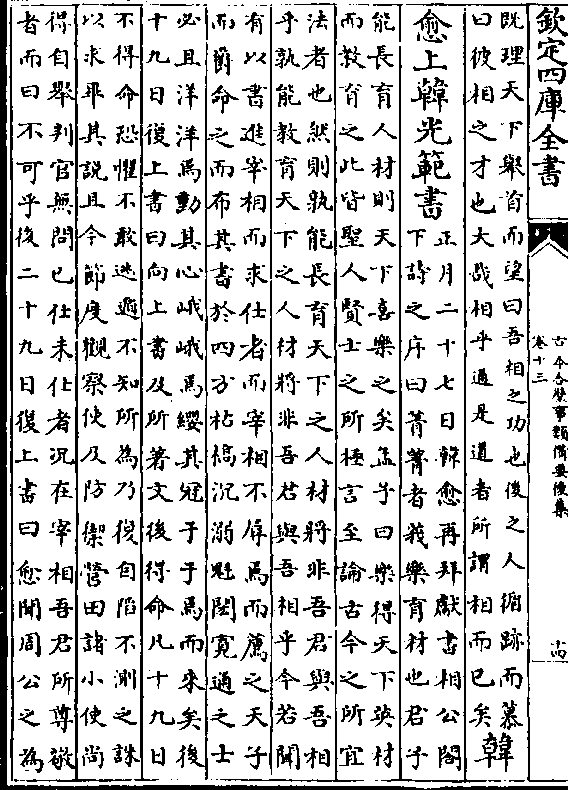 欽定四庫全書
古今合璧事類備要後集
卷十三
十四
既理天下舉首而望曰吾相之功也後之人循跡而慕
曰彼相之才也大哉相乎通是道者所謂相而已矣韓
愈上韓光範書
正月二十七日韓愈再拜獻書相公閤
下詩之序曰菁菁者莪樂育材也君子
能長育人材則天下喜樂之矣孟子曰樂得天下英材
而教育之此皆聖人賢士之所極言至論古今之所宜
法者也然則孰能長育天下之人材將非吾君與吾相
乎孰能教育天下之人材將非吾君與吾相乎今若聞
有以書進宰相而求仕者而宰相不辱焉而薦之天子
而爵命之而布其書於四方枯槁沉溺魁閎寛通之士
必且洋洋焉動其心峨峨焉纓其冠于于焉而來矣後
十九日復上書曰向上書及所著文後待命凡十九日
不得命恐懼不敢逃遁不知所為乃復自陷不測之誅
以求畢其說且今節度觀察使及防禦營田諸小使尚
得自舉判官無間已仕未仕者況在宰相吾君所尊敬
者而曰不可乎後二十九日復上書曰愈聞周公之為